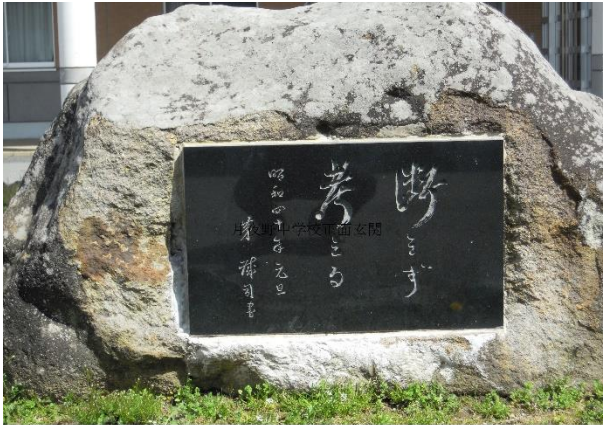 断えず
考える
昭和四十年元旦
月夜野中学校正面玄関